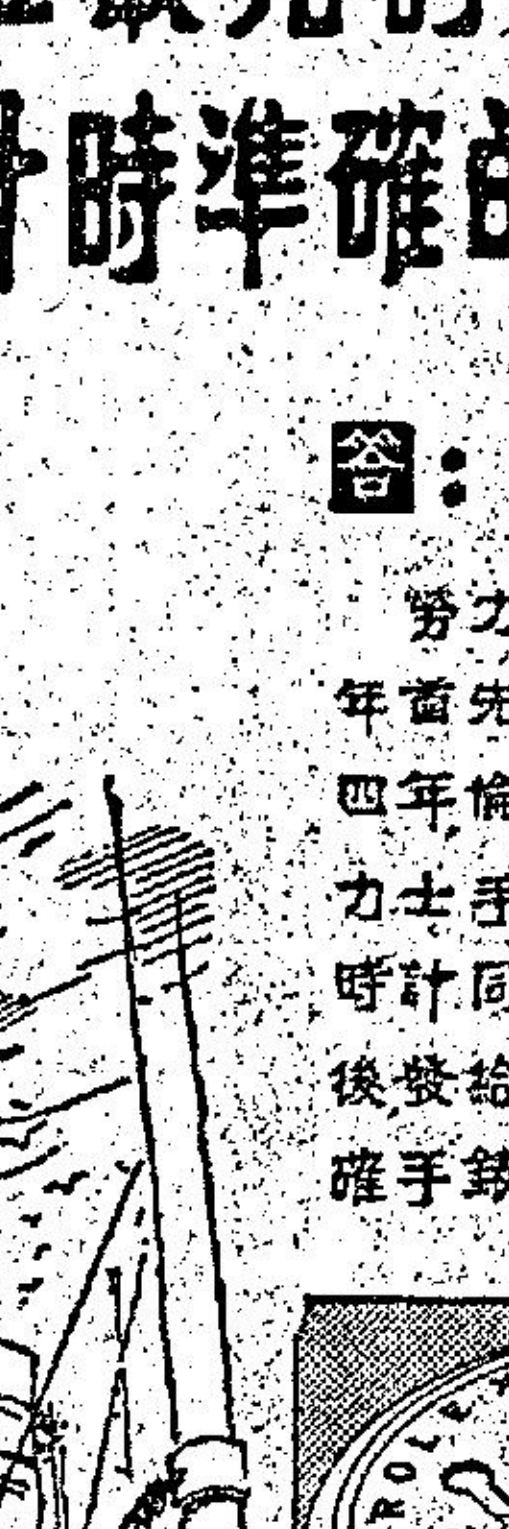 時準確
答：
勞力
年首先
四年倫
力士手
時計同
後發給
確手錶
ROLE